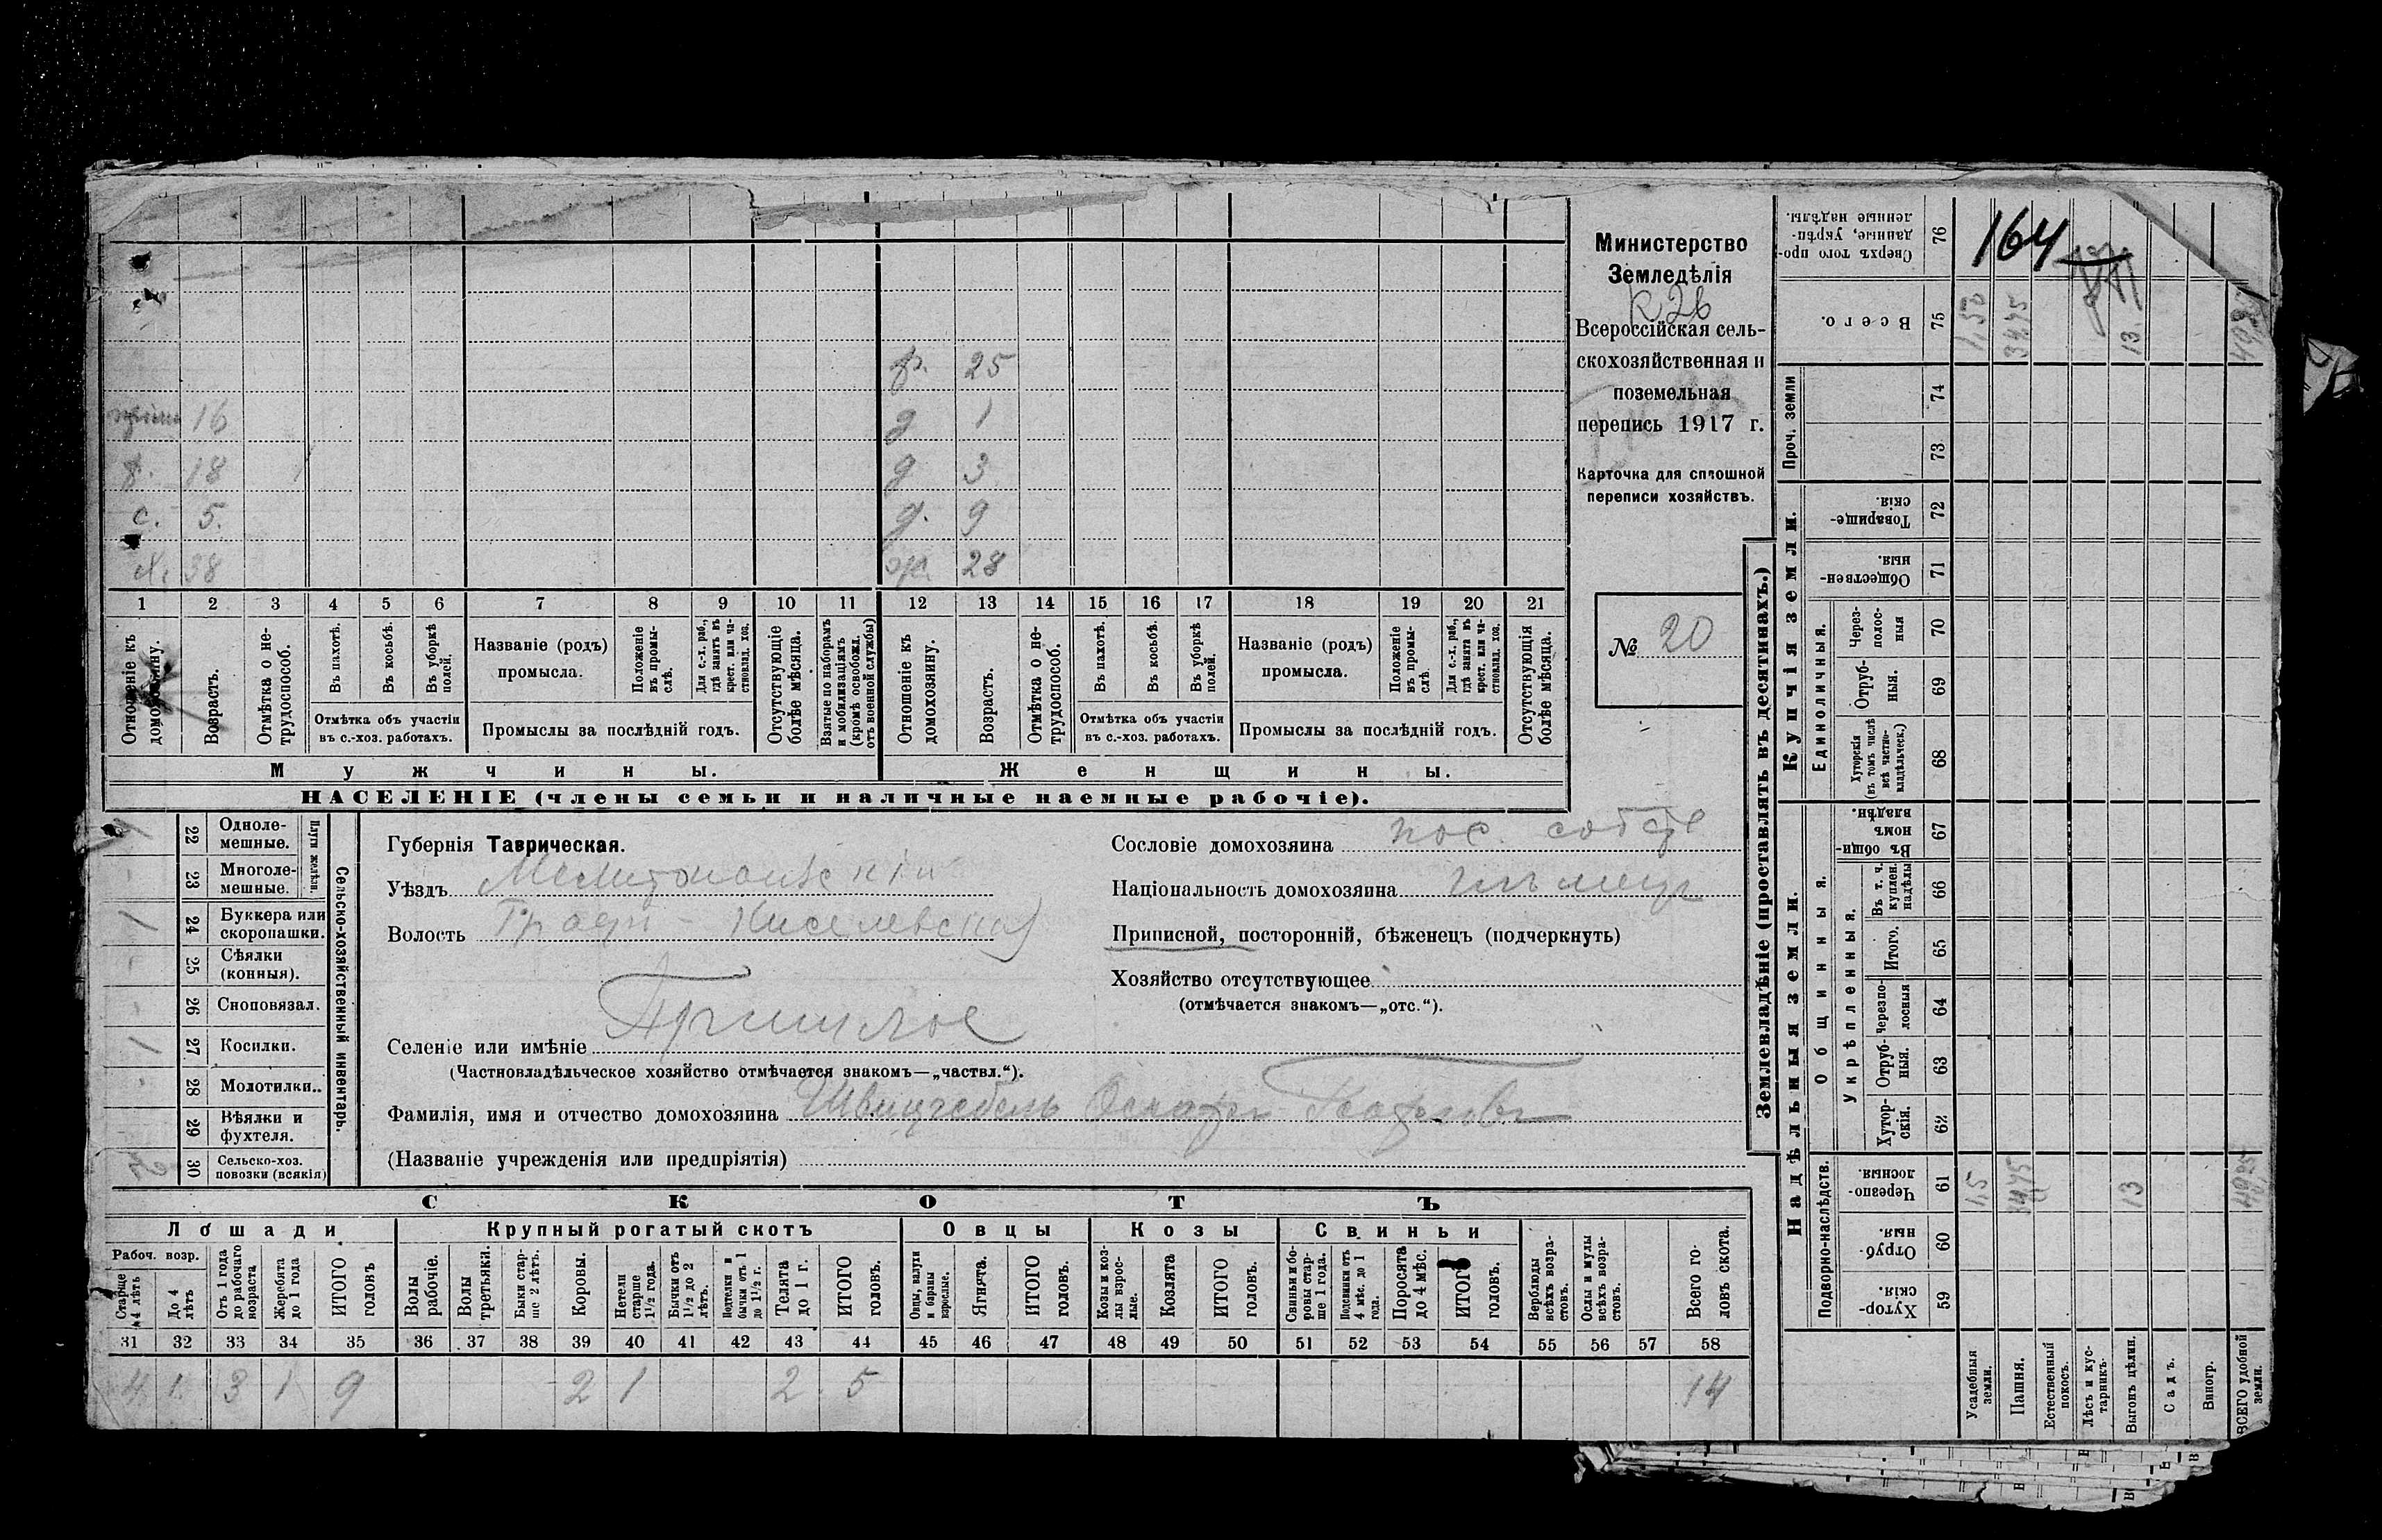 Министерство
Земледѣлія
Всероссійская сель-
скохозяйственная и
поземельная
перепись 1917 г.
Карточка для сплошной
переписи хозяйствъ.
№ 20
164
р. 25
16
д 1
р. 18 1
д 3
с. 5.
д. 9
38
ж. 28
1 2 3 4 5 6 7 8 9 10 11 12 13 14 15 16 17 18 19 20 21
Отношеніе къ домохозяину.
Возрастъ.
Отмѣтка о не-трудоспособ.
Въ пахотѣ.
Въ косьбѣ.
Въ уборкѣ полей.
Отмѣтка объ участіи
въ с.-хоз. работахъ.
Названіе (родъ)
промысла.
Положеніе въ промы-слѣ.
Для с.-х. раб., гдѣ занятъ въ крест. или ча-стновлад. хоз.
Промыслы за послѣдній годъ.
Отсутствующіе болѣе мѣсяца.
Взятые по наборамъ и мобилизаціямъ (кромѣ освобожд. отъ военной службы)
Отношеніе къ домохозяину.
Возрастъ.
Отмѣтка о не-трудоспособ.
Въ пахотѣ.
Въ косьбѣ.
Въ уборкѣ полей.
Отмѣтка объ участіи
въ с.-хоз. работахъ.
Названіе (родъ)
промысла.
Положеніе въ промы-слѣ
Для с.-х. раб., гдѣ занята въ крест. или ча-стновлад. хоз.
Промыслы за послѣдній годъ.
Отсутствующія болѣе мѣсяца.
Мужчины.
Женщины.
НАСЕЛЕНІЕ (члены семьи и наличные наемные рабочіе).
Сельско-хозяйственный инвентарь.
Плуги желѣзн.
22 Одноле-мешные.
23 Многоле-мешные.
1 24 Буккера или скоропашки.
25 Сѣялки (конныя).
26 Сноповязал.
1 27 Косилки.
28 Молотилки..
29 Вѣялки и фухтеля.
30 Сельско-хоз. повозки (всякія)
Губернія Таврическая.
Уѣздъ Мелитопольскій
Волость Графи - Киселевская
Селеніе или имѣніе Пришлое
(Частновладѣльческое хозяйство отмѣчается знакомъ—„частвл.“).
Фамилія, имя и отчество домохозяина
(Названіе учрежденія или предпріятія)
Сословіе домохозяина пос. собств
Національность домохозяина нѣмецъ
Приписной, посторонній, бѣженецъ (подчеркнуть)
Хозяйство отсутствующее
(отмѣчается знакомъ—„отс.“).
СКОТЪ
Лошади
Крупный рогатый скотъ
Овцы
Козы
Свиньи
Рабоч. возр.
Старше 4 лѣтъ
До 4 лѣтъ
Отъ 1 года до рабочаго возраста
Жеребята до 1 года
ИТОГО головъ
Волы рабочіе.
Волы третьяки.
Быки стар-ше 2 лѣтъ.
Коровы.
Нетели старше 1½ года.
Бычки отъ 1½ до 2 лѣтъ.
Подтелки и бычки отъ 1 до 1½ г.
Телята до 1 г.
ИТОГО головъ.
Овцы, валухи и бараны взрослые.
Ягнята.
ИТОГО головъ.
Козы и коз-лы взрос-лые.
Козлята
ИТОГО головъ.
Свиньи и бо-ровы стар-ше 1 года.
Подсвинки отъ 4 мѣс. до 1 года.
Поросята до 4 мѣс.
ИТОГО головъ.
Верблюды всѣхъ возра-стовъ.
Ослы и мулы всѣхъ возра-стовъ.
Всего го-ловъ скота.
31 32 33 34 35 36 37 38 39 40 41 42 43 44 45 46 47 48 49 50 51 52 53 54 55 56 57 58
4 1 3 1 9 2 1 2 5 14
Землевладѣніе (проставлять въ десятинахъ.)
Купчія земли.
Надѣльныя земли.
Сверхъ того про-данные, укрѣп-ленные надѣлы. 76
Всего. 75 1,50 34,75 13.
Проч. земли
74
73
Товарище-скія. 72
Обществен-ныя. 71
Единоличныя.
Через-полос-ныя 70
Отруб-ныя. 69
Хуторскія (въ томъ числѣ всѣ частно-владѣльческ.) 68
Общинныя.
Въ общин-номъ владѣн. 67
Укрѣпленныя.
Въ т. ч. куплен. надѣлы 66
Итого. 65
Черезпо-лосныя 64
Отруб-ныя. 63
Хутор-скія. 62
Подворно-наслѣдств.
Черезпо-лосныя. 61 1,5 34,75 13 49,25
Отруб-ныя. 60
Хутор-скія. 59
Усадебныя земли.
Пашня.
Естественный покосъ.
Лѣсъ и кус-тарникъ.
Выгонъ цѣлин.
Садъ.
Виногр.
ВСЕГО удобной земли.